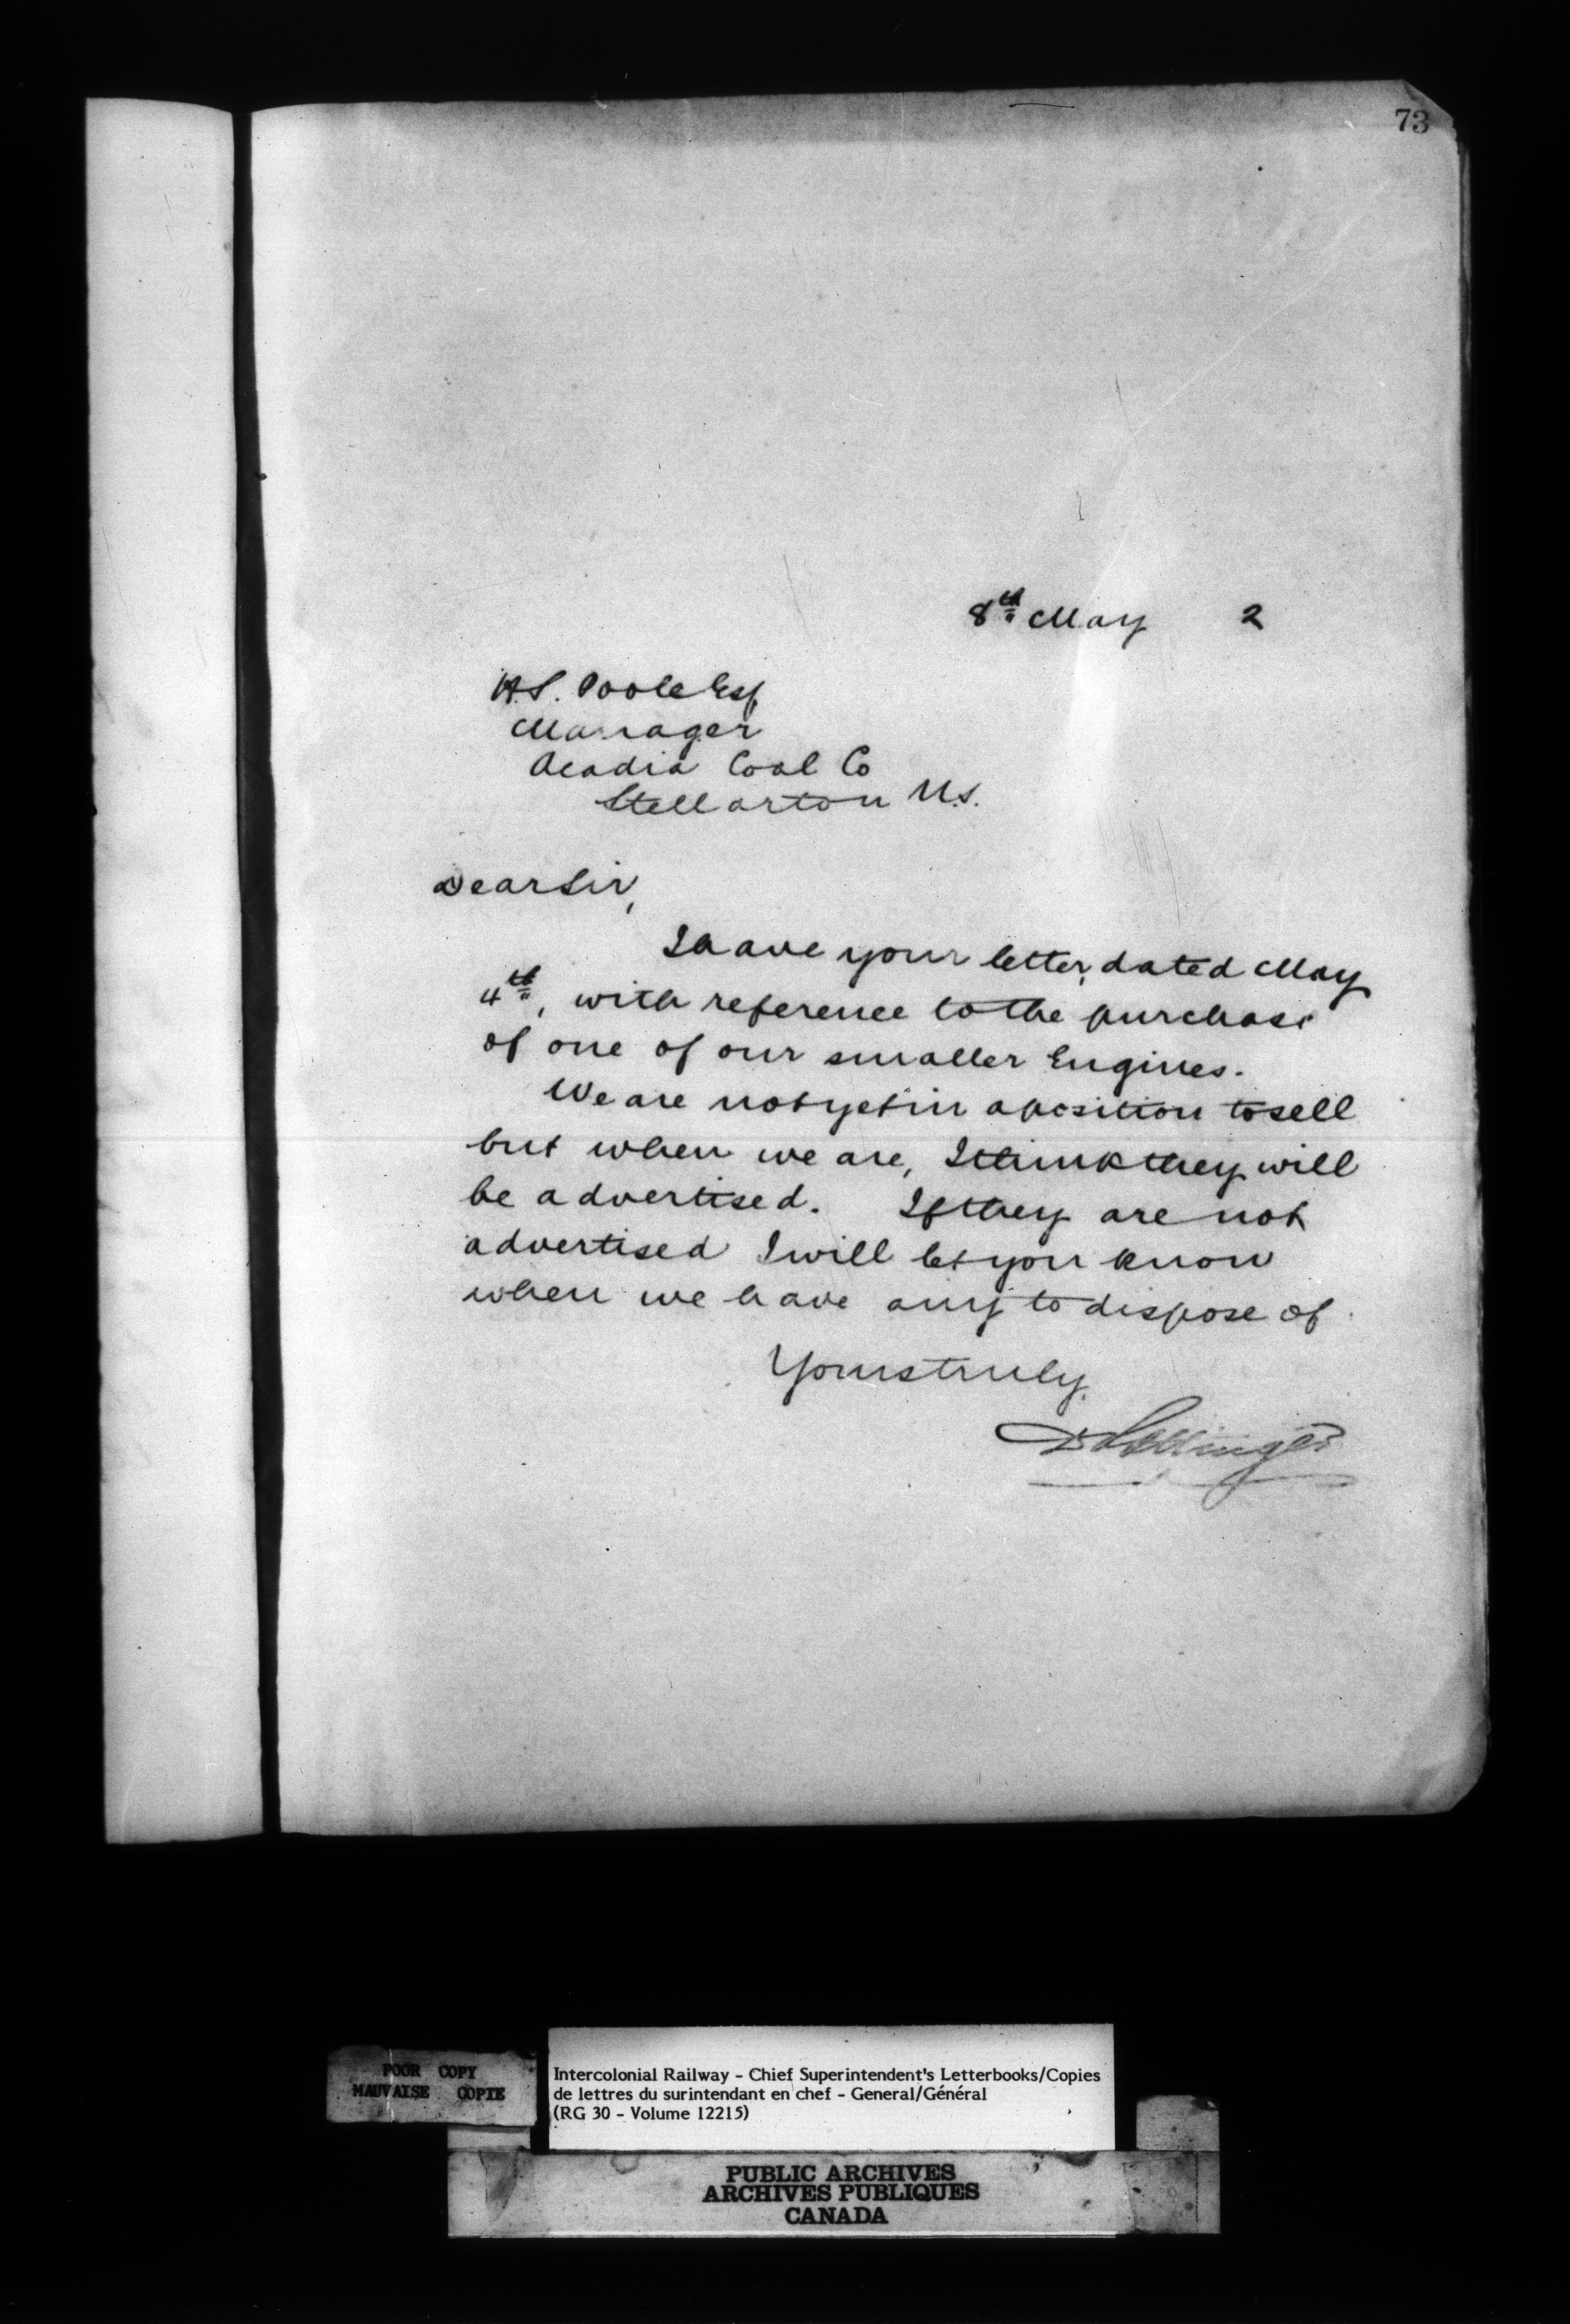 73
8th May 2
H.S. Poole Esq
Manager
Acadia Coal Co
Stellarton N.S.
Dear Sir,
I have your letter, dated May
4th, with reference to the purchase
of one of our smaller Engines.
We are not yet in a position to sell
but when we are, I think they will
be advertised. If they are not
advertised I will let you know
when we have any to dispose of.
Yours truly,
D Pottinger
POOR COPY
MAUVAISE COPIE
Intercolonial Railway - Chief Superintendent's Letterbooks/Copies
de lettres du surintendant en chef - General/Général
(RG 30 - Volume 12215)
PUBLIC ARCHIVES
ARCHIVES PUBLIQUES
CANADA